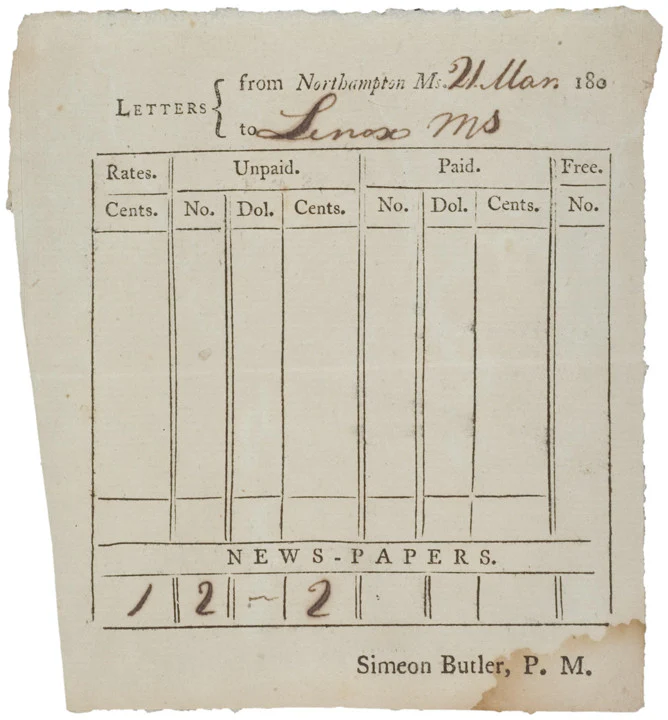 from Northampton Ms. 21 Mar. 180
LETTERS
to Lenox Ms
Rates. Unpaid. Paid. Free.
Cents. No. Dol. Cents. No. Dol. Cents. No.
NEWS-PAPERS.
1 2 ~ 2
Simeon Butler, P. M.